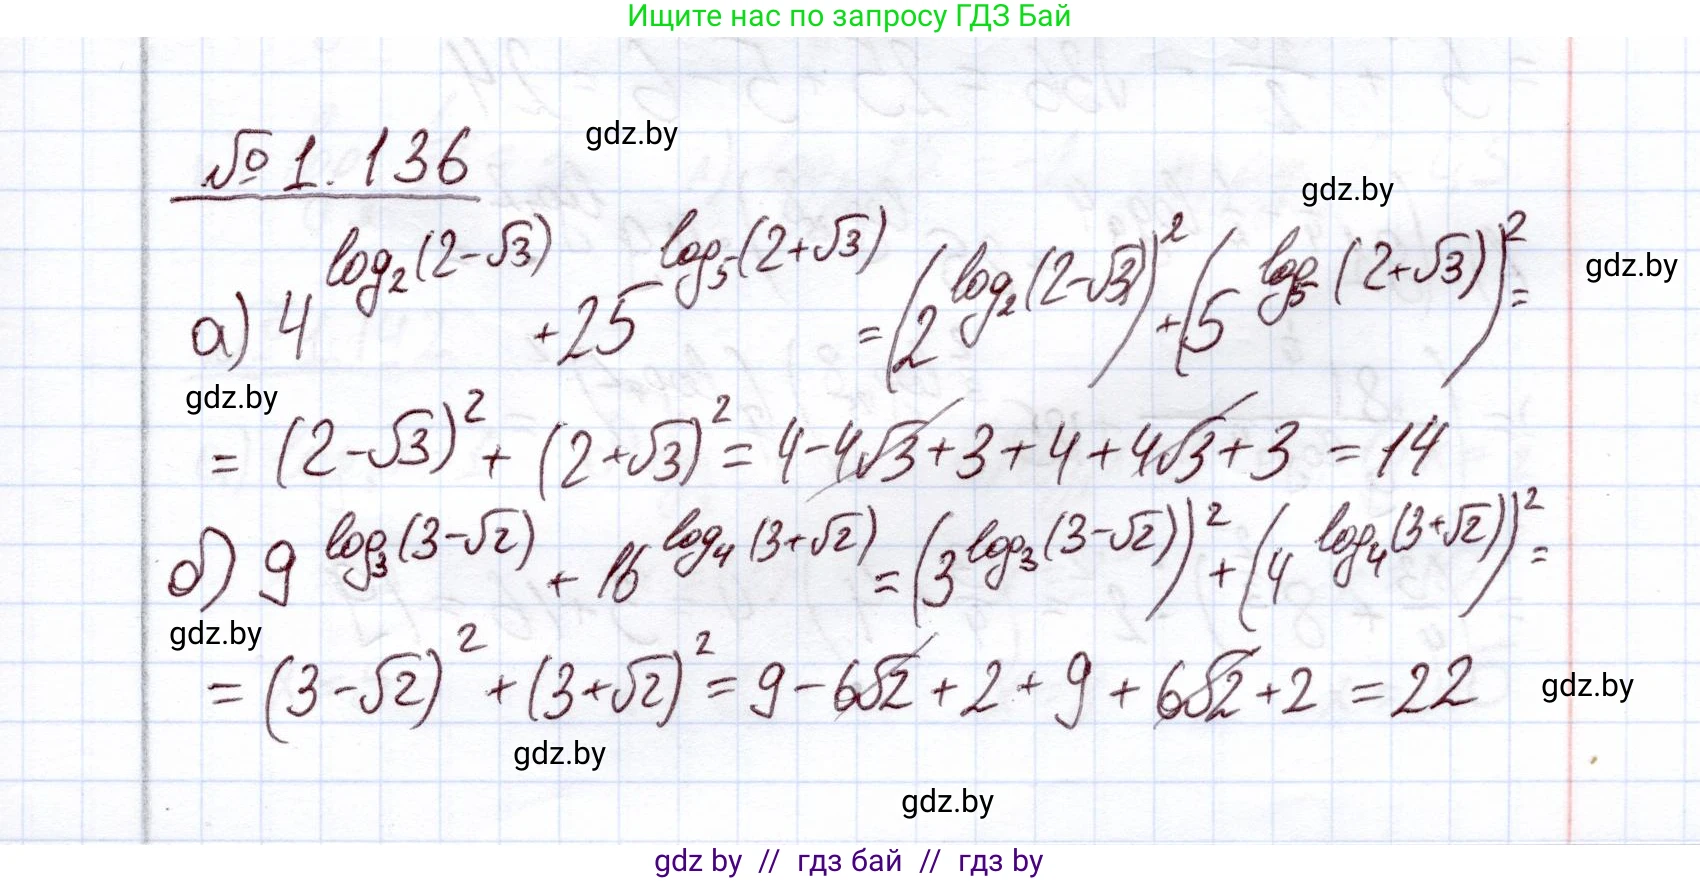 Ищите нас по запросу ГДЗ Бай
gdz.by
№ 1.136
gdz.by
а) 4^log₂(2-√3) + 25^log₅(2+√3) = (2^log₂(2-√3))² + (5^log₅(2+√3))² =
gdz.by
gdz.by
= (2-√3)² + (2+√3)² = 4-4√3+3+4+4√3+3 = 14
б) 9^log₃(3-√2) + 16^log₄(3+√2) = (3^log₃(3-√2))² + (4^log₄(3+√2))² =
gdz.by
= (3-√2)² + (3+√2)² = 9-6√2+2+9+6√2+2 = 22
gdz.by
gdz.by
gdz.by
gdz by // гдз бай // гдз by